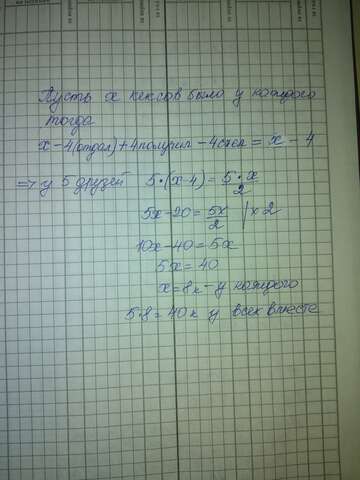 Пусть x кексов было у каждого
тогда
x-4(отдал)+4 получил -4 съел = x - 4
=> у 5 друзей 5·(x-4)=5·x/2
5x-20=5x/2 /×2
10x-40=5x
5x=40
x=8к - у каждого
5·8=40к у всех вместе